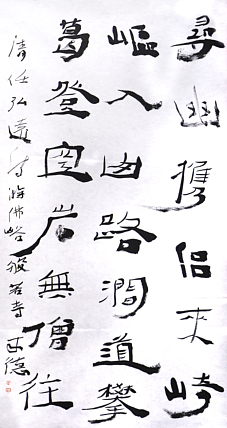 尋幽攜侶來崎
嶇入山路澗道攀
葛登空岩無僧往
清任弘遠詩游佛峪般若寺